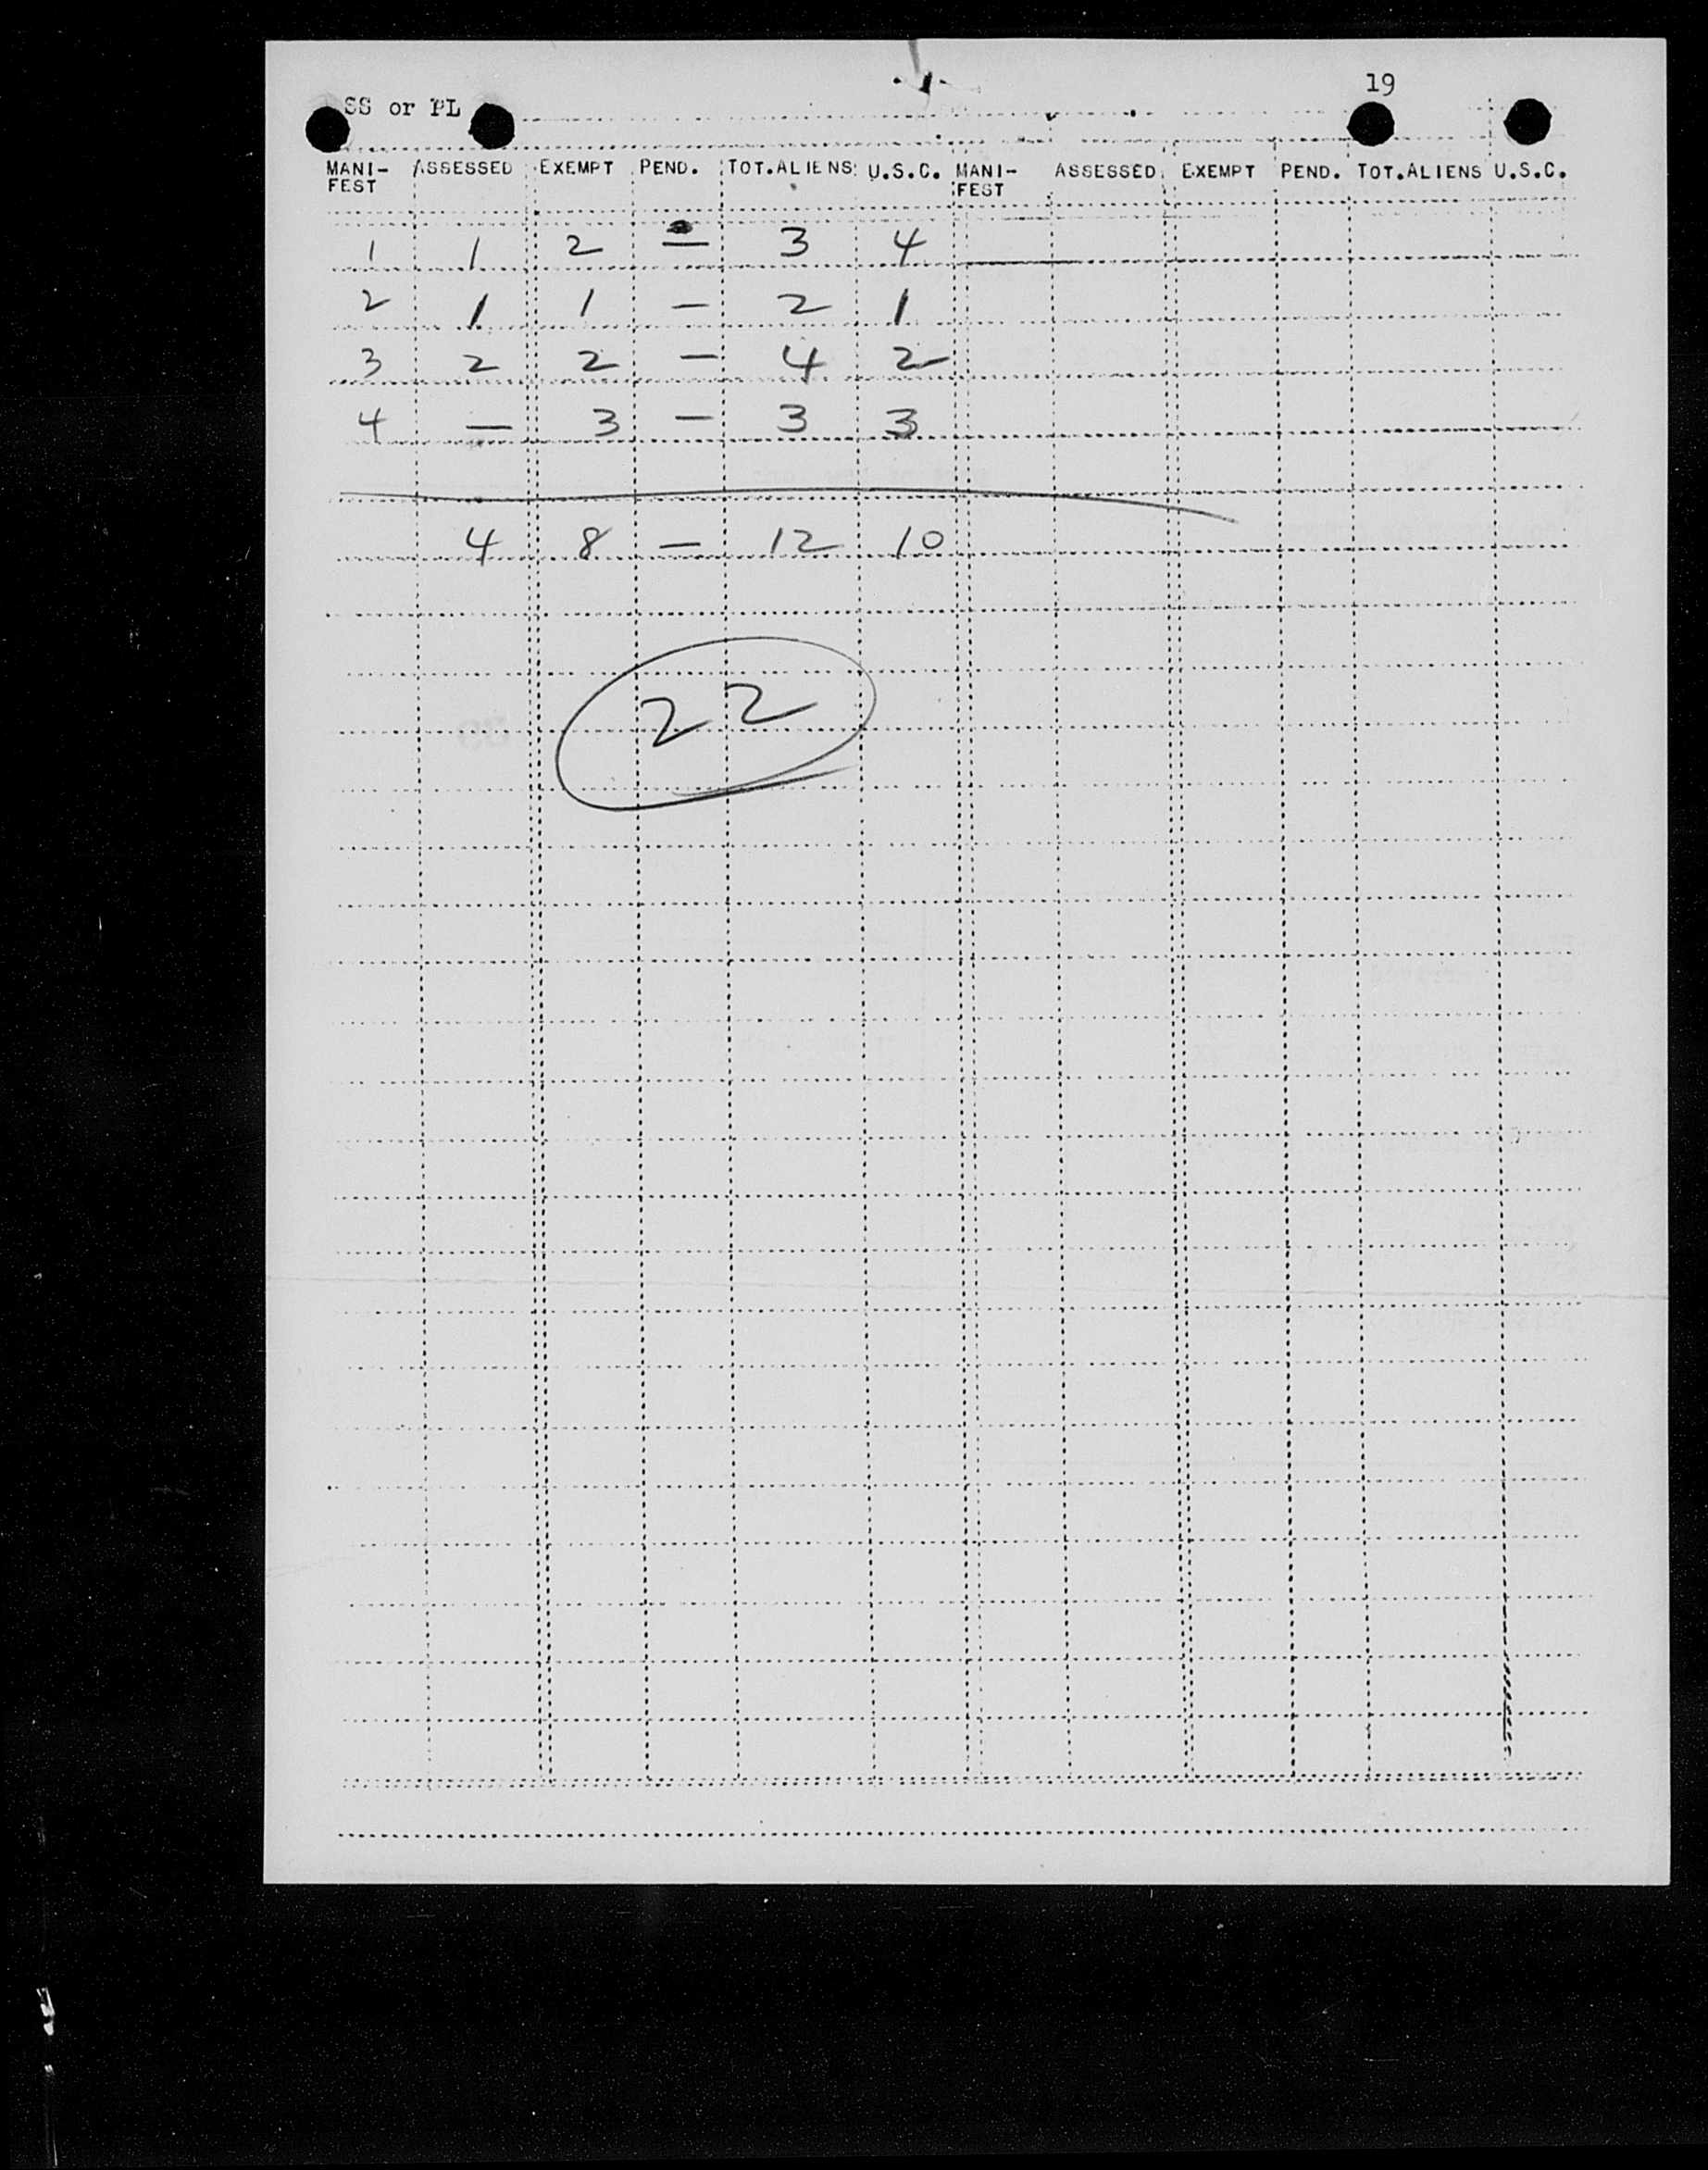 19
SS or PL
MANI- ASSESSED EXEMPT PEND. TOT.ALIENS U.S.C. MANI- ASSESSED EXEMPT PEND. TOT.ALIENS U.S.C.
FEST FEST
1 1 2 — 3 4
2 1 1 — 2 1
3 2 2 — 4 2
4 — 3 — 3 3
4 8 — 12 10
22